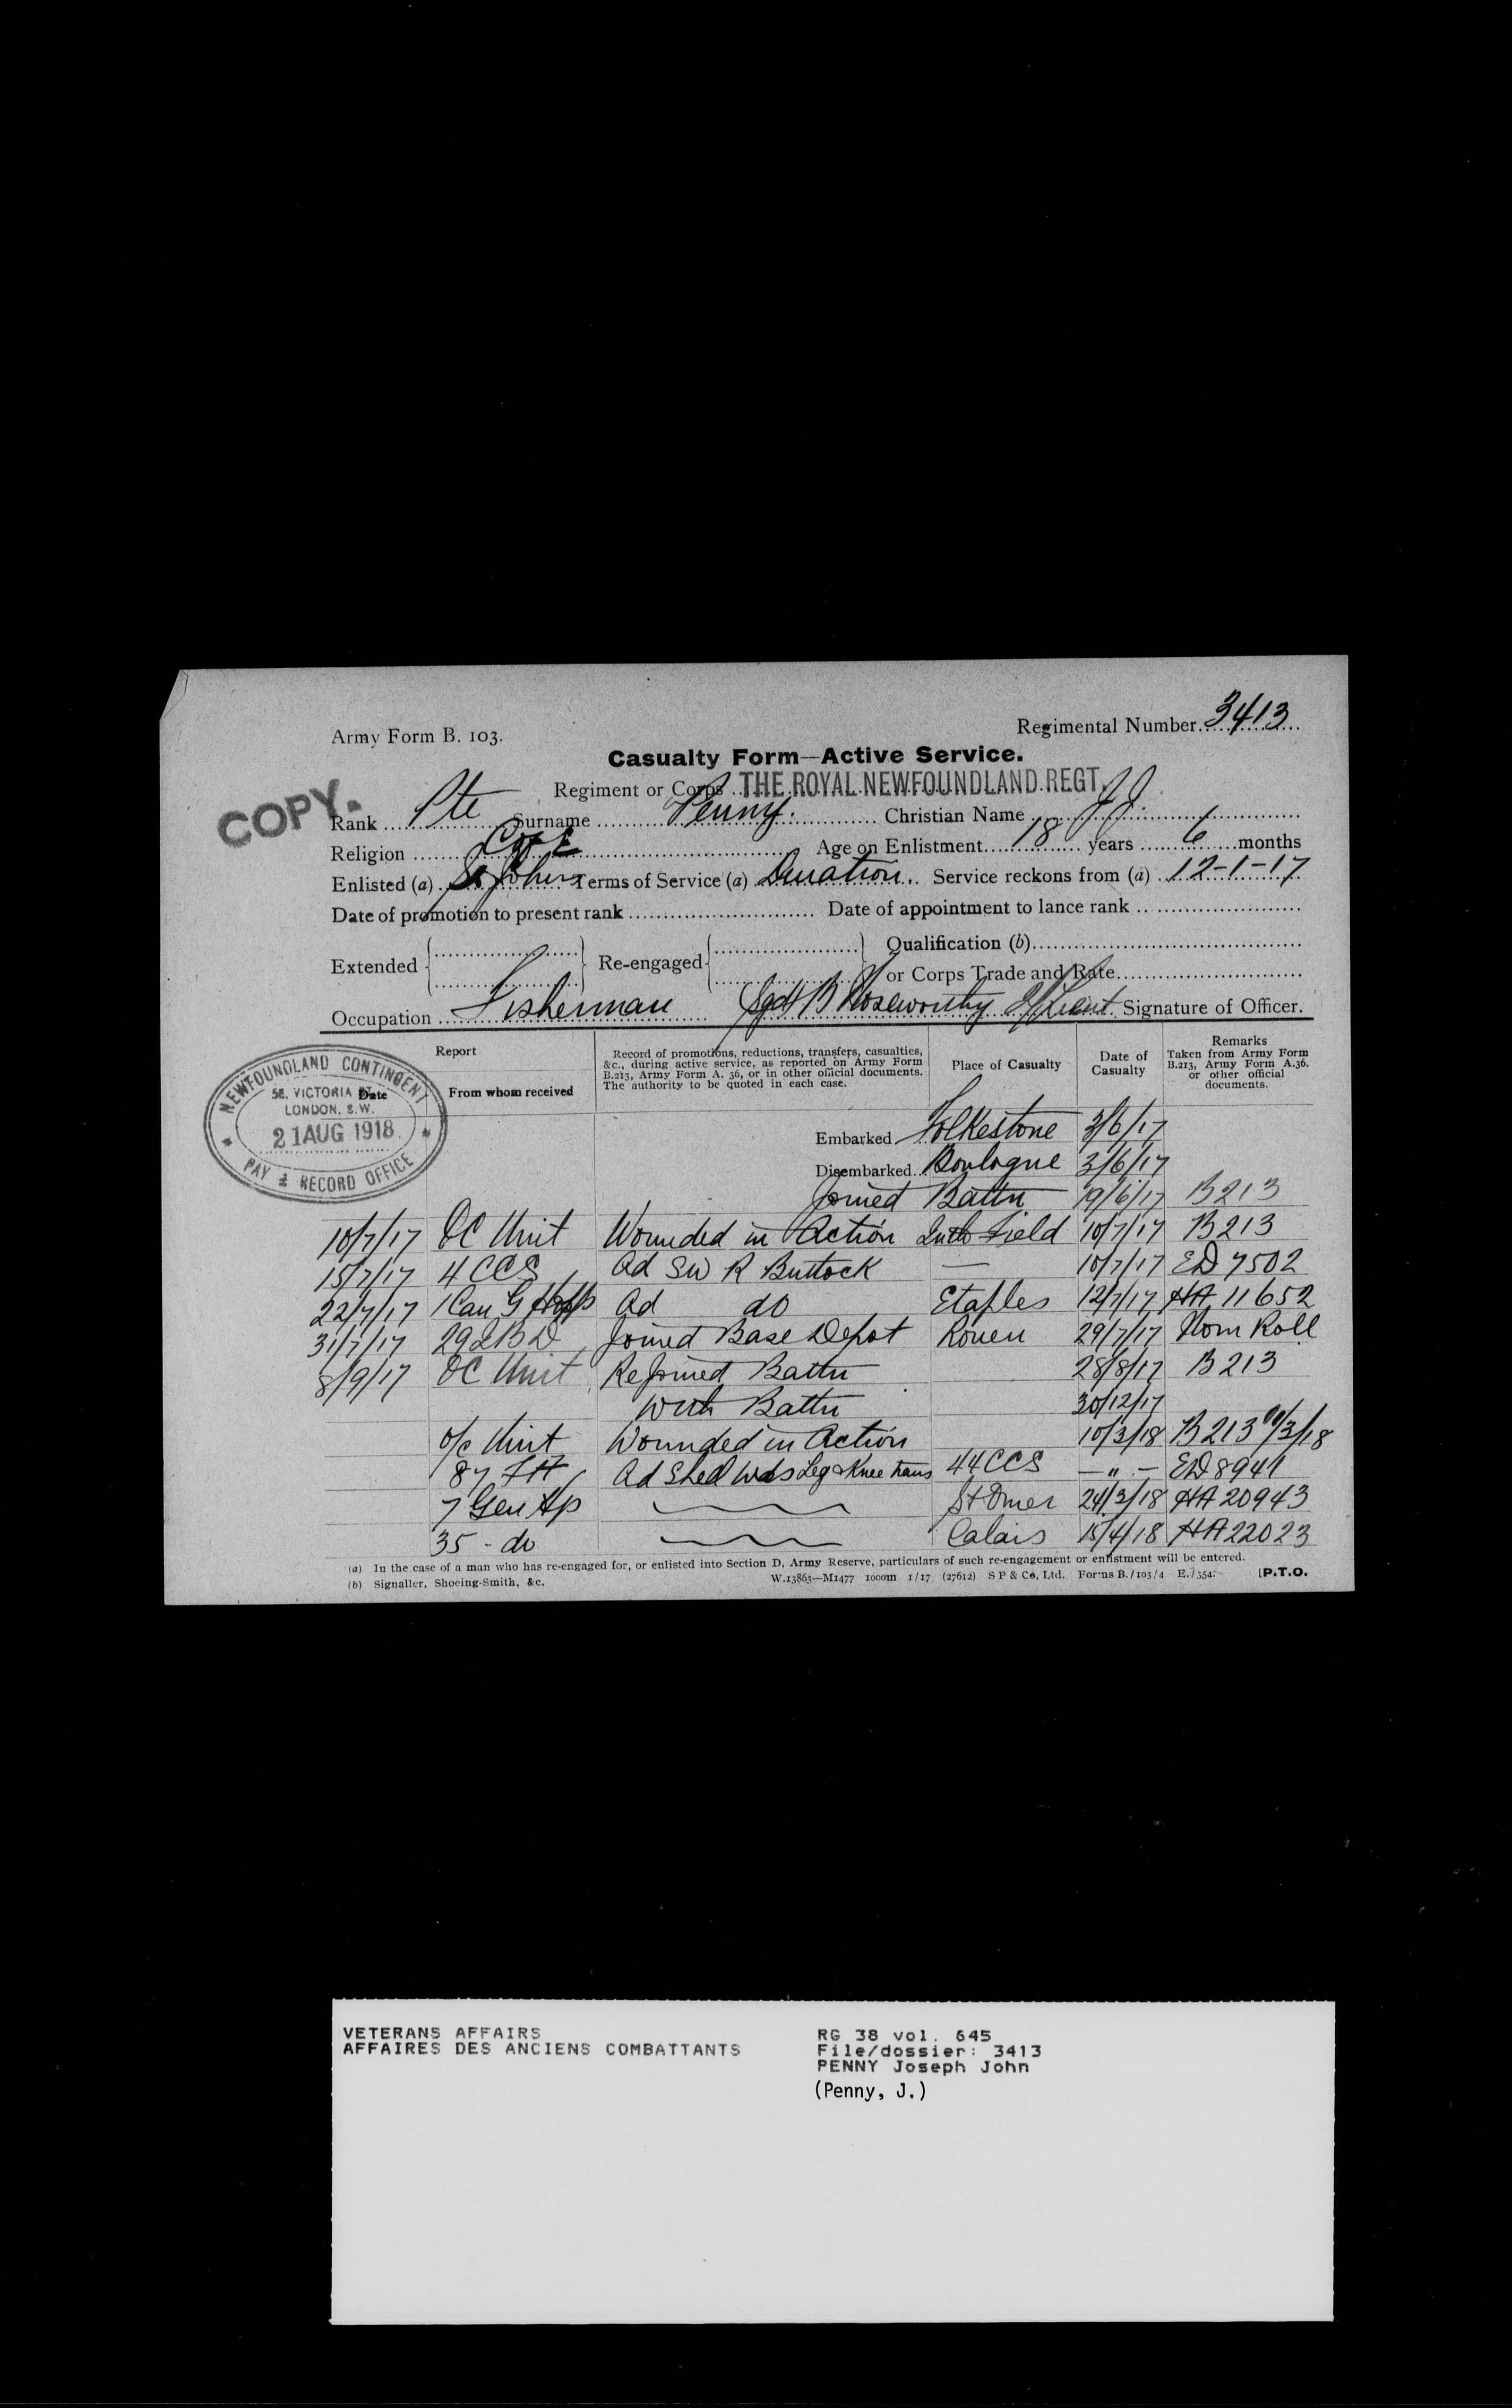 Army Form B. 103.
Regimental Number 3413
Casualty Form—Active Service.
COPY.
Regiment or Corps THE ROYAL NEWFOUNDLAND REGT.
Rank Pte Surname Penny. Christian Name J.J.
Religion C of E Age on Enlistment 18 years 6 months
Enlisted (a) St Johns Terms of Service (a) Duration. Service reckons from (a) 12-1-17
Date of promotion to present rank Date of appointment to lance rank
Extended Re-engaged Qualification (b)
or Corps Trade and Rate
Occupation Fisherman Sgd B Noseworthy 2/Lieut Signature of Officer.
Report
Date From whom received
Record of promotions, reductions, transfers, casualties, &c., during active service, as reported on Army Form B.213, Army Form A. 36, or in other official documents. The authority to be quoted in each case.
Place of Casualty
Date of Casualty
Remarks Taken from Army Form B.213, Army Form A.36, or other official documents.
NEWFOUNDLAND CONTINGENT
58, VICTORIA ST.
LONDON, S.W.
21 AUG 1918
PAY & RECORD OFFICE
Embarked Folkestone 3/6/17
Disembarked Boulogne 3/6/17
Joined Battn 19/6/17 B213
10/7/17 OC Unit Wounded in Action In the Field 10/7/17 B213
15/7/17 4 CCS Ad SW R Buttock — 10/7/17 ED 7502
22/7/17 1 Can G Hosp Ad do Etaples 12/7/17 HA 11652
31/7/17 29 I B D Joined Base Depot Rouen 29/7/17 Nom Roll
8/9/17 OC Unit Rejoined Battn 28/8/17 B213
With Battn 30/12/17
o/c Unit Wounded in Action 10/3/18 B213 /3/18
87 FA Ad Shell Wds Leg & Knee trans 44 CCS — " — ED 8941
7 Gen Hp St Omer 24/3/18 HA 20943
35 - do Calais 15/4/18 HA 22023
(a) In the case of a man who has re-engaged for, or enlisted into Section D, Army Reserve, particulars of such re-engagement or enlistment will be entered.
(b) Signaller, Shoeing-Smith, &c. W.13863—M1477 1000m 1/17 (27612) S P & Co, Ltd. Forms B./103/4 E./354. [P.T.O.
VETERANS AFFAIRS
AFFAIRES DES ANCIENS COMBATTANTS
RG 38 vol. 645
File/dossier: 3413
PENNY Joseph John
(Penny, J.)